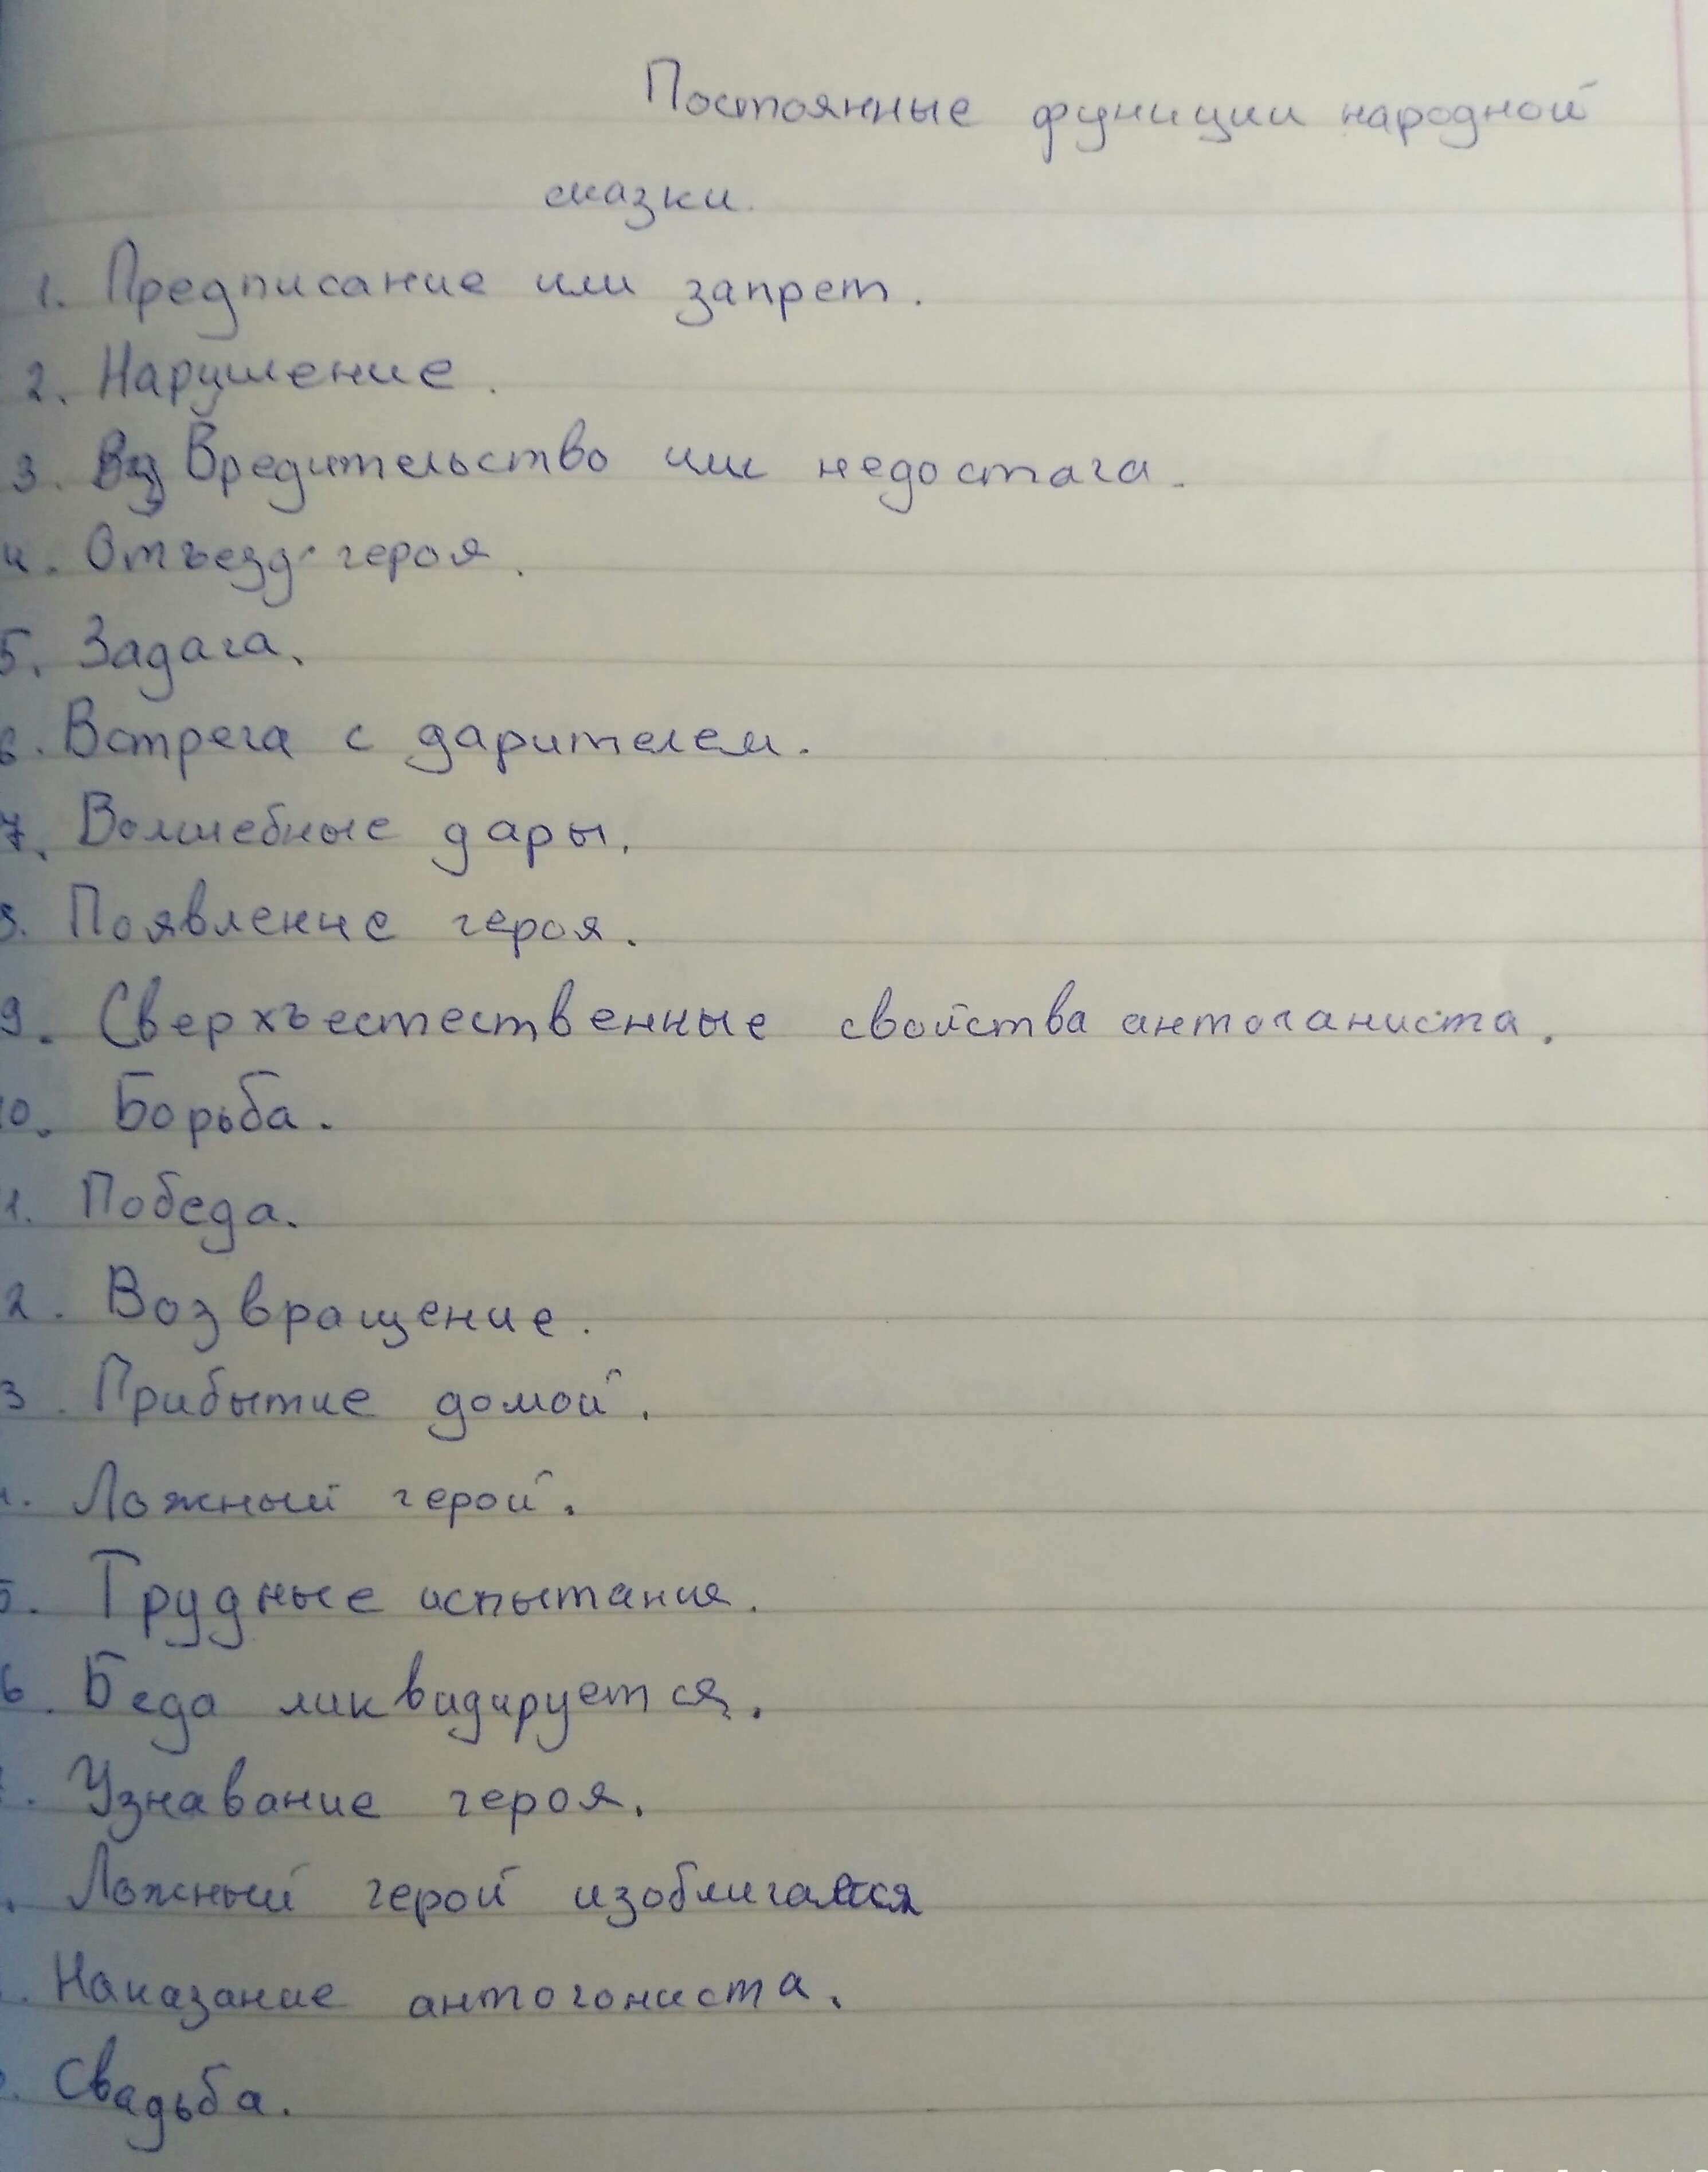 Постоянные функции народной
сказки.
1. Предписание или запрет.
2. Нарушение.
3. Вредительство или недостача.
4. Отъезд героя.
5. Задача.
6. Встреча с дарителем.
7. Волшебные дары.
8. Появление героя.
9. Сверхъестественные свойства антоганиста.
10. Борьба.
1. Победа.
2. Возвращение.
3. Прибытие домой.
4. Ложный герой.
5. Трудные испытания.
6. Беда ликвидируется.
. Узнавание героя.
. Ложный герой изобличается
. Наказание антогониста.
. Свадьба.